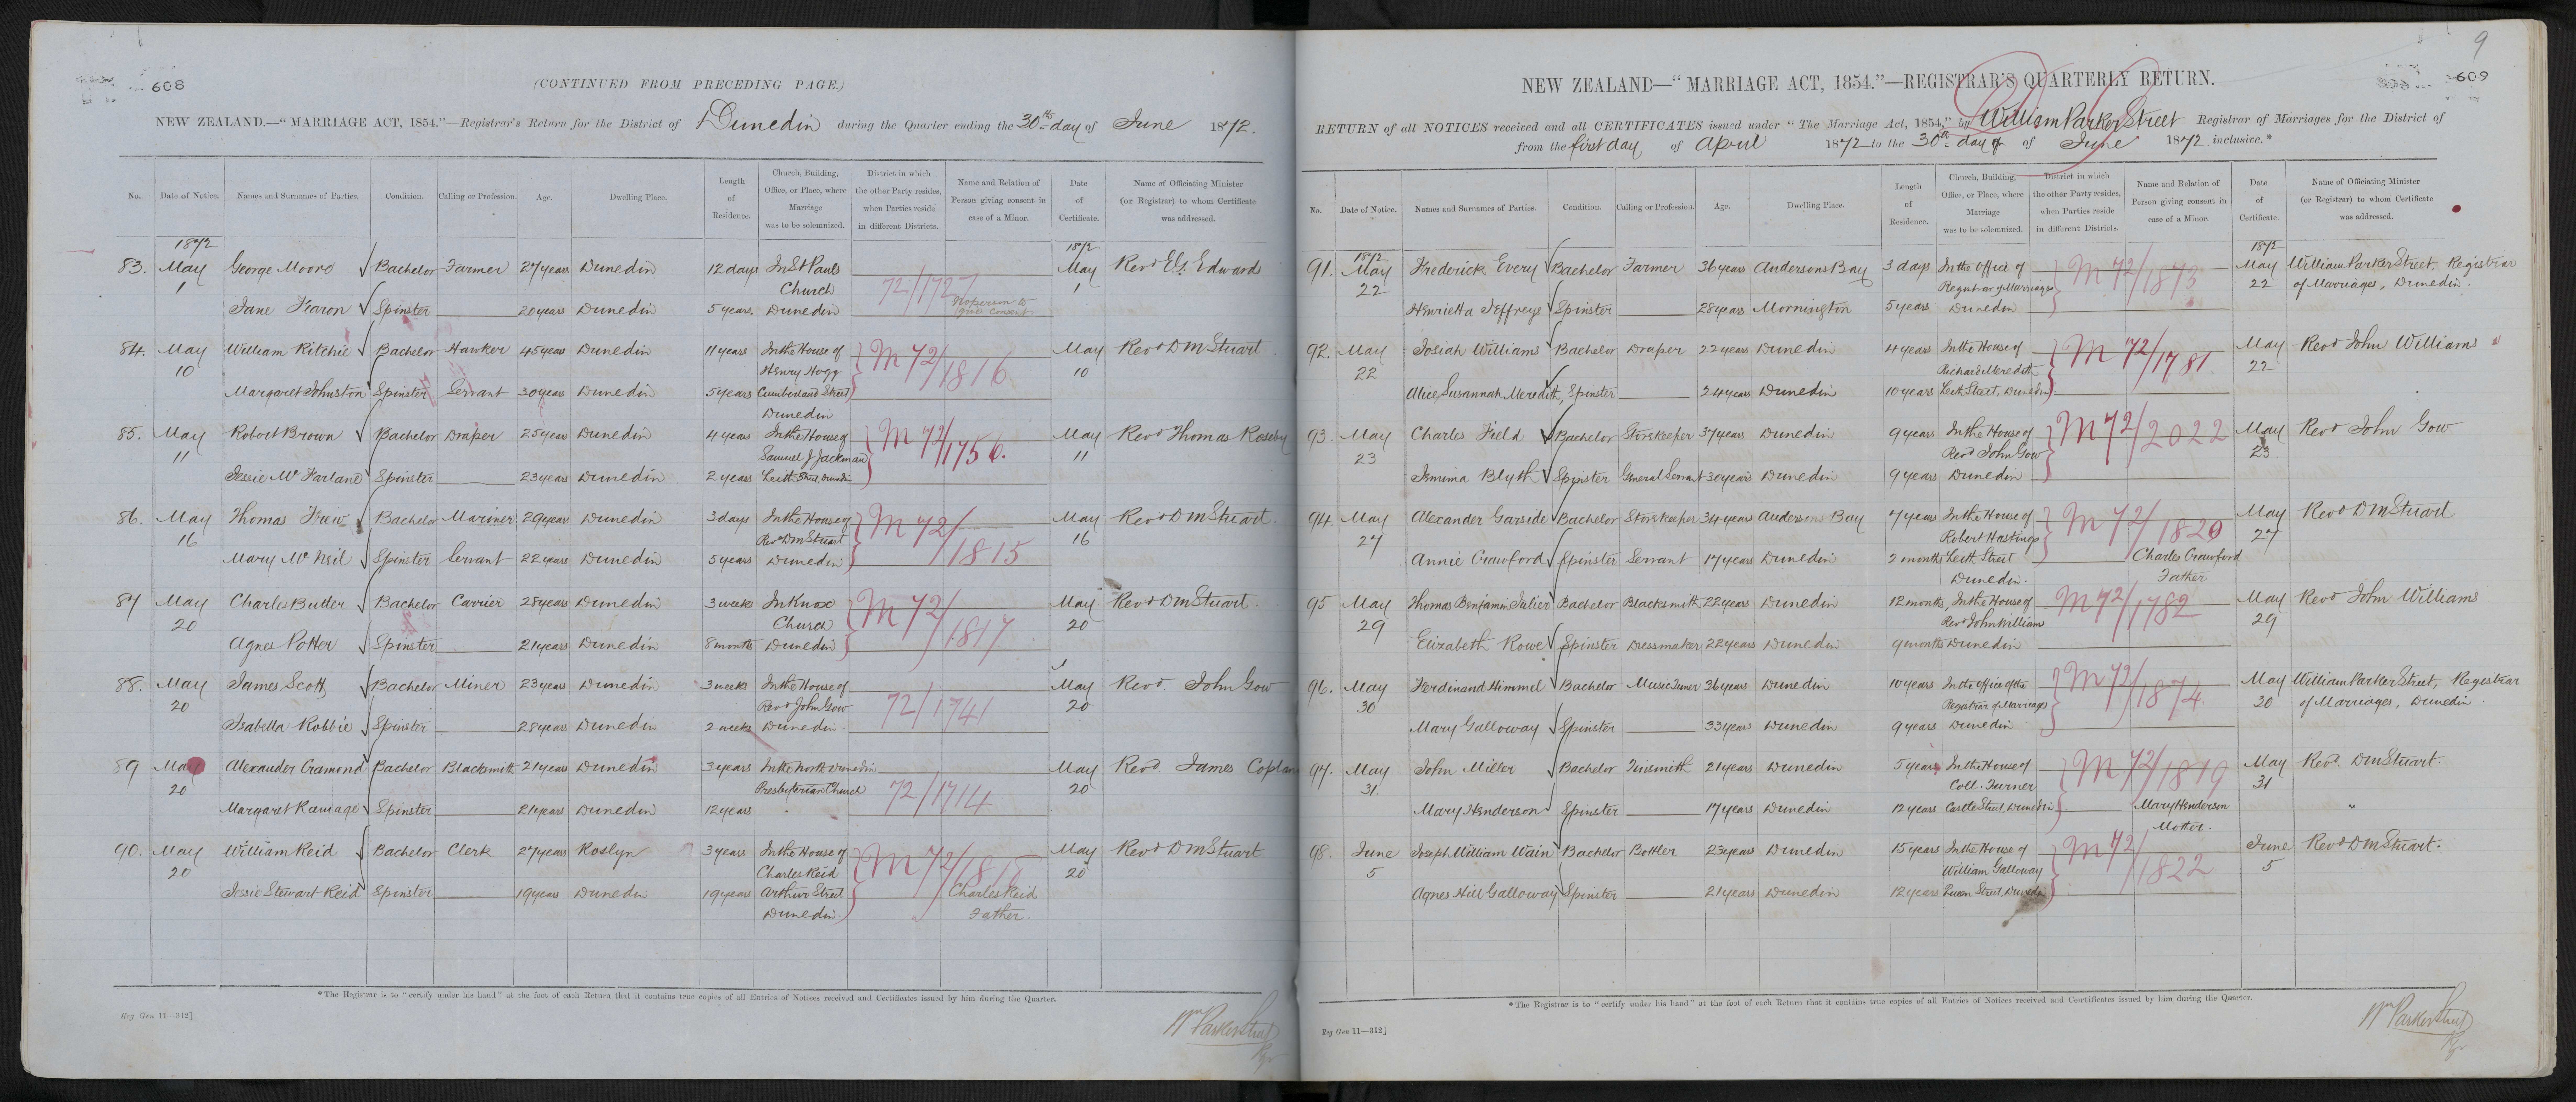 608
(CONTINUED FROM PRECEDING PAGE.)
NEW ZEALAND.—"MARRIAGE ACT, 1854."—Registrar's Return for the District of Dunedin during the Quarter ending the 30th day of June 1872.
No. Date of Notice. Names and Surnames of Parties. Condition. Calling or Profession. Age. Dwelling Place. Length of Residence. Church, Building, Office, or Place, where Marriage was to be solemnized. District in which the other Party resides, when Parties reside in different Districts. Name and Relation of Person giving consent in case of a Minor. Date of Certificate. Name of Officiating Minister (or Registrar) to whom Certificate was addressed.
1872 1872
83. May George Moore Bachelor Farmer 27 years Dunedin 12 days In St Pauls May Revd Edwards
1 Church 72/1727 1
Jane Fearon Spinster 20 years Dunedin 5 years. Dunedin No person to give consent
84. May William Ritchie Bachelor Hawker 45 years Dunedin 11 years In the House of M 72/1816 May Revd DM Stuart
10 Henry Hogg 10
Margaret Johnston Spinster Servant 30 years Dunedin 5 years Cumberland Street
Dunedin
85. May Robert Brown Bachelor Draper 25 years Dunedin 4 years In the House of M 72/1750. May Revd Thomas Roseby
11 Samuel J Jackman 11
Jessie Mc Farland Spinster 23 years Dunedin 2 years Leith Street, Dunedin
86. May Thomas Frew Bachelor Mariner 29 years Dunedin 3 days In the House of M 72/1815 May Revd DM Stuart.
16 Revd DM Stuart 16
Mary Mc Neil Spinster Servant 22 years Dunedin 5 years Dunedin
87 May Charles Butter Bachelor Carrier 28 years Dunedin 3 weeks In Knox M 72/1817 May Revd DM Stuart.
20 Church 20
Agnes Potter Spinster 21 years Dunedin 8 months Dunedin
88. May James Scott Bachelor Miner 23 years Dunedin 3 weeks In the House of 72/1741 May Revd. John Gow
20 Revd John Gow 20
Isabella Robbie Spinster 28 years Dunedin 2 weeks Dunedin.
89 May Alexander Cramond Bachelor Blacksmith 21 years Dunedin 3 years In the North Dunedin 72/1714 May Revd. James Coplan
20 Presbyterian Church 20
Margaret Ramage Spinster 21 years Dunedin 12 years
90. May William Reid Bachelor Clerk 27 years Roslyn 3 years In the House of M 72/ May Revd DM Stuart
20 Charles Reid 20
Jessie Stewart Reid Spinster 19 years Dunedin 19 years Arthur Street Charles Reid
Dunedin. Father.
*The Registrar is to "certify under his hand" at the foot of each Return that it contains true copies of all Entries of Notices received and Certificates issued by him during the Quarter.
Reg Gen 11—312]
Wm Parker Street
Rgr
9
609
NEW ZEALAND—"MARRIAGE ACT, 1854."—REGISTRAR'S QUARTERLY RETURN.
RETURN of all NOTICES received and all CERTIFICATES issued under "The Marriage Act, 1854," by William Parker Street Registrar of Marriages for the District of
from the first day of April 1872 to the 30th day of of June 1872 inclusive.*
No. Date of Notice. Names and Surnames of Parties. Condition. Calling or Profession. Age. Dwelling Place. Length of Residence. Church, Building, Office, or Place, where Marriage was to be solemnized. District in which the other Party resides, when Parties reside in different Districts. Name and Relation of Person giving consent in case of a Minor. Date of Certificate. Name of Officiating Minister (or Registrar) to whom Certificate was addressed.
1872 1872
91. May Frederick Every Bachelor Farmer 36 years Andersons Bay 3 days In the Office of M 72/1873 May William Parker Street, Registrar
22 Registrar of Marriages 22 of Marriages, Dunedin.
Henrietta Jeffreys Spinster 28 years Mornington 5 years Dunedin
92. May Josiah Williams Bachelor Draper 22 years Dunedin 4 years In the House of M 72/1781. May Revd John Williams
22 Richard Meredith 22
Alice Susannah Meredith, Spinster 24 years Dunedin 10 years Leith Street, Dunedin
93. May Charles Field Bachelor Storekeeper 37 years Dunedin 9 years In the House of M 72/2022 May Revd John Gow
23 Revd John Gow 23
Jemima Blyth Spinster General Servant 30 years Dunedin 9 years Dunedin
94. May Alexander Garside Bachelor Storekeeper 34 years Andersons Bay 7 years In the House of M 72/1820 May Revd DM Stuart
27 Robert Hastings 27
Annie Crawford Spinster Servant 17 years Dunedin 2 months Leith Street Charles Crawford
Dunedin. Father
95 May Thomas Benjamin Julier Bachelor Blacksmith 22 years Dunedin 12 months, In the House of M 72/1782 May Revd John Williams
29 Revd John William 29
Elizabeth Rowe Spinster Dressmaker 22 years Dunedin 9 months Dunedin
96. May Ferdinand Himmel Bachelor Music Tuner 36 years Dunedin 10 years In the Office of the M 72/1874. May William Parker Street, Registrar
30 Registrar of Marriages 30 of Marriages, Dunedin.
Mary Galloway Spinster 33 years Dunedin 9 years Dunedin
97. May John Miller Bachelor Tinsmith 21 years Dunedin 5 years In the House of M 72/1819 May Revd. DM Stuart.
31. Coll. Turner 31
Mary Henderson Spinster 17 years Dunedin 12 years Castle Street, Dunedin Mary Henderson "
Mother.
98. June Joseph William Wain Bachelor Bottler 23 years Dunedin 15 years In the House of M 72/1822 June Revd DM Stuart.
5 William Galloway 5
Agnes Hill Galloway Spinster 21 years Dunedin 12 years Queen Street, Dunedin
*The Registrar is to "certify under his hand" at the foot of each Return that it contains true copies of all Entries of Notices received and Certificates issued by him during the Quarter.
Reg Gen 11—312]
Wm Parker Street
Rgr